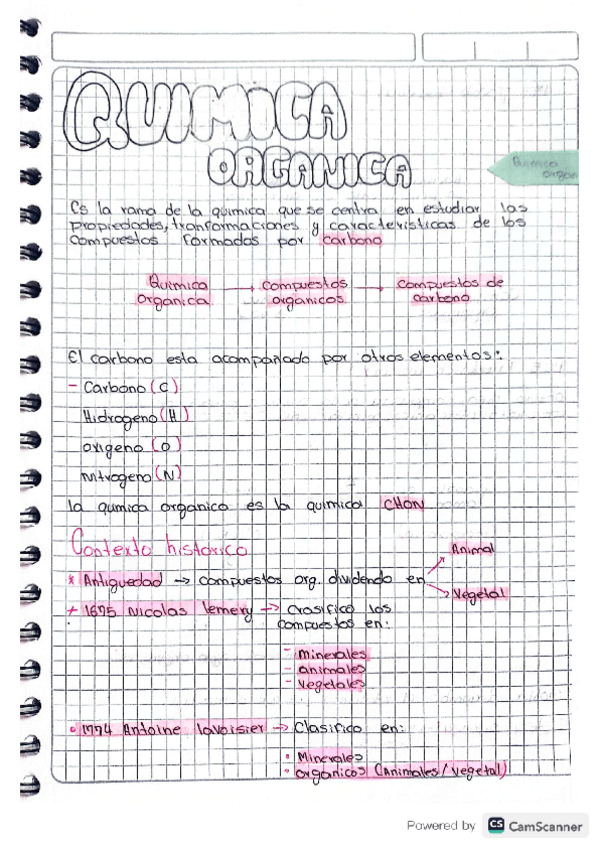 QUIMICA
ORGANICA
Quimica
organ
Es la rama de la quimica que se centra en estudiar las
propiedades, tranformaciones y caracteristicas de los
compuestos formados por carbono
Quimica → compuestos → compuestos de
organica organicos carbono
El carbono esta acompañado por otros elementos:
- Carbono (C)
Hidrogeno (H)
oxigeno (O)
nitrogeno (N)
la quimica organica es la quimica CHON
Contexto historico
Animal
* Antiguedad → compuestos org. dividendo en
Vegetal
+ 1675 Nicolas lemery → Crasifico los
compuestos en:
- minerales
- animales
- vegetales
• 1774 Antoine lavoisier → Clasifico en:
• Minerales
• organicos (Animales / Vegetal)
Powered by CS CamScanner